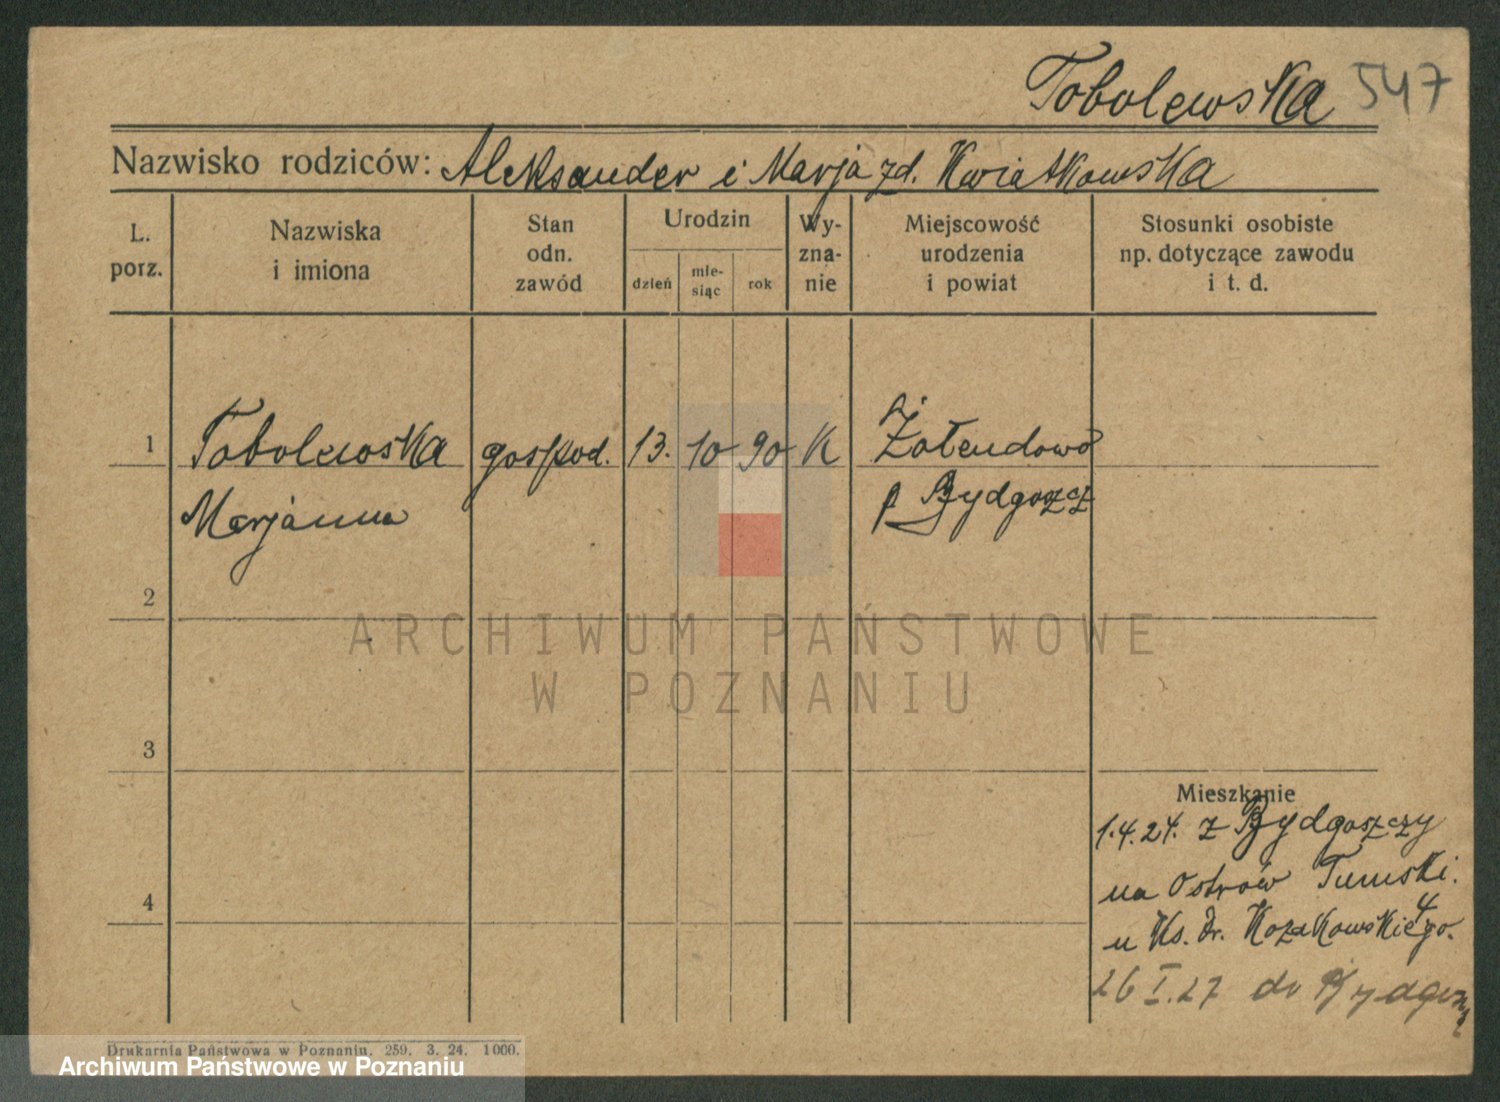 Tobolewska 547
Nazwisko rodziców: Aleksander i Marja zd. Kwiatkowska
L. porz.
Nazwiska i imiona
Stan odn. zawód
Urodzin
dzień
miesiąc
rok
Wyznanie
Miejscowość urodzenia i powiat
Stosunki osobiste np. dotyczące zawodu i t. d.
1 Tobolewska gospod. 13. 10 90 K Żołendowo
Marjanna p Bydgoszcz
2
ARCHIWUM PAŃSTWOWE
W POZNANIU
3
Mieszkanie
1.4.24. z Bydgoszczy
na Ostrów Tumski. 4
4
u Ks. Dr. Kozakowskiego.
26 I.27 do Bydgoszczy
Drukarnia Państwowa w Poznaniu. 259. 3. 24. 1000.
Archiwum Państwowe w Poznaniu